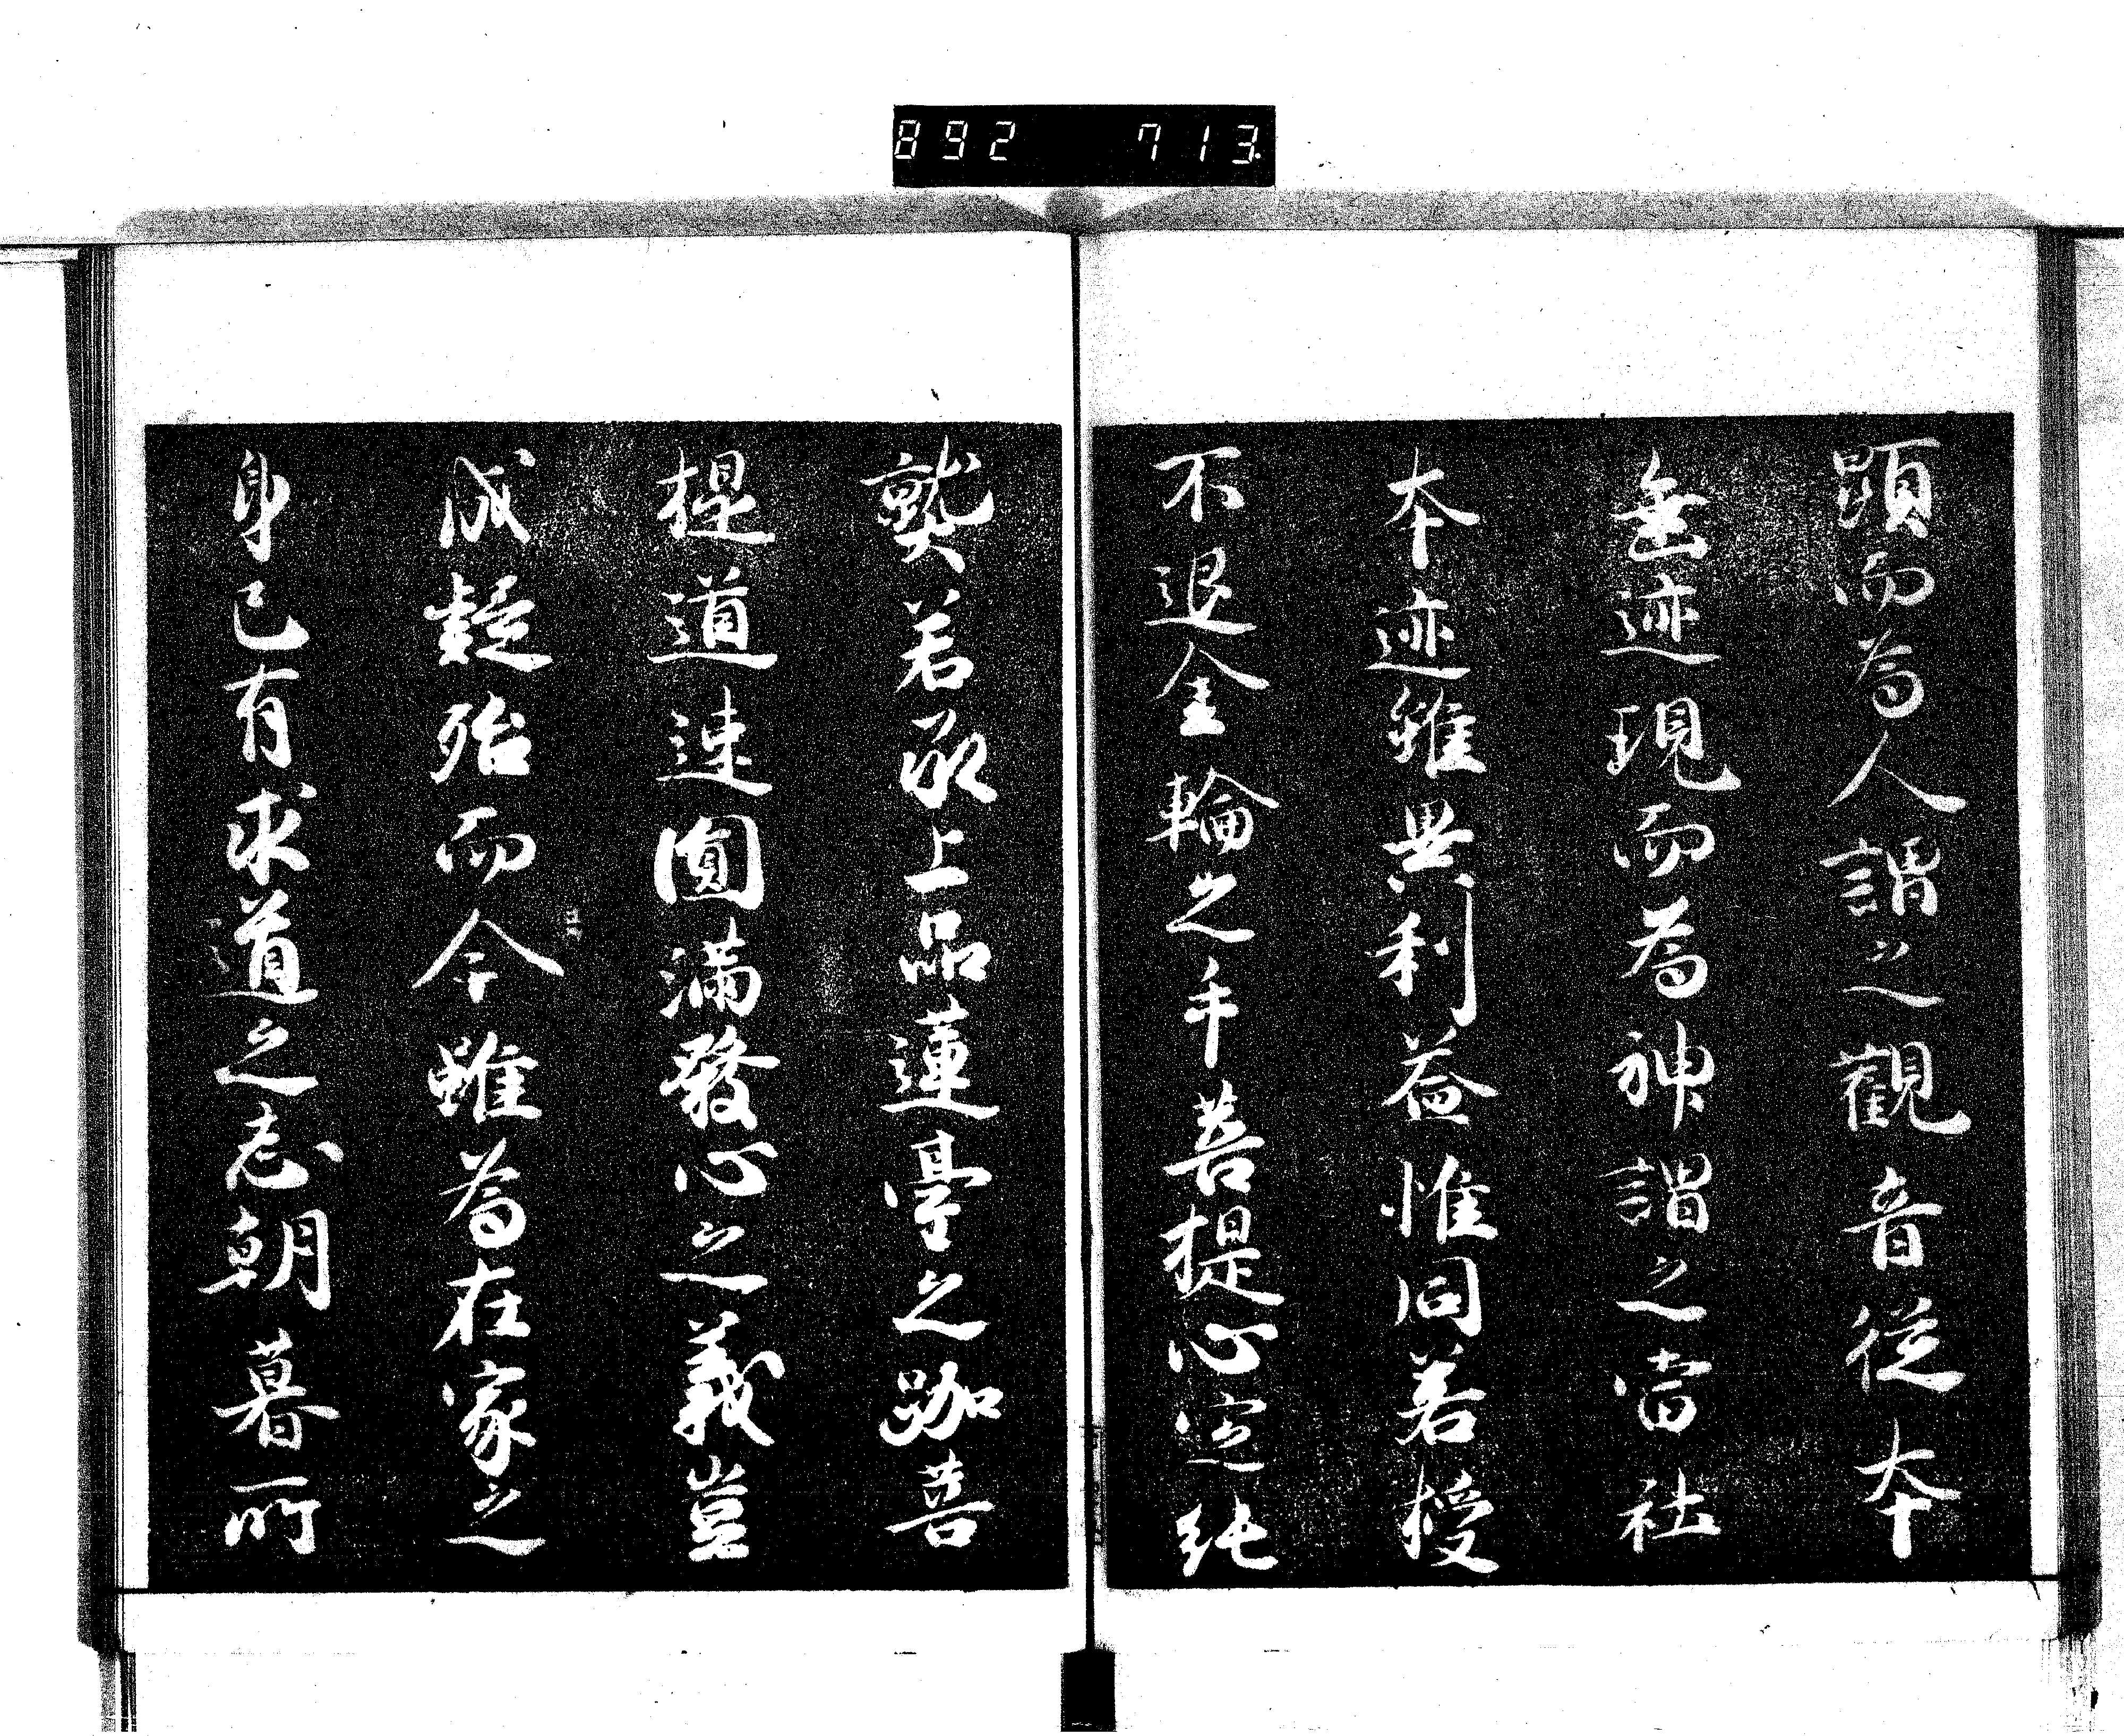 892 713
顕而為人謂之觀音從本
垂迹現而為神謂之當社
本迹雖異利益惟同若授
不退金輪之手菩提心定純
熟若承上品蓮臺之跏菩
提道速圓滿發心之義豈
成疑殆而今雖為在家之
身已有求道之志朝暮所